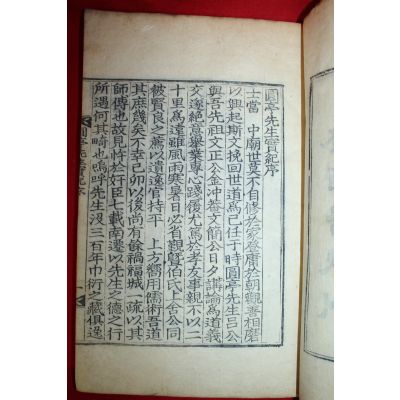 圓亭先生實紀序
士當　中廟世莫不自修於家登庸於朝觀善相磨
以興起斯文挽回世道爲己任于時圓亭先生呂公
與吾先祖文正公金冲菴文簡公日夕講論爲道義
交遂絕意擧業專心踐履尤篤於孝友事親不以二
十里爲遠雖風雨寒暑日必省觀曁伯氏上舍公同
被賢良之薦以遺逸官持平　上方嚮用儒術吾道
其庶幾矣不幸己卯以後尚有餘禍福城一疏以其
師傅也故見忤於奸臣七載南遷以先生之德之行
所遇何其畸也嗚呼先生沒三百年巾衍之藏俱逸
圓亭先生實紀序
一